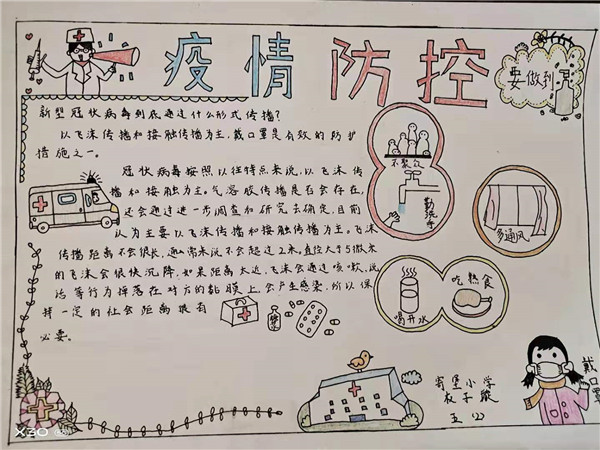 疫情防控
要做到
新型冠状病毒到底通过什么形式传播?
以飞沫传播和接触传播为主,戴口罩是有效的防护
措施之一。
冠状病毒按照以往特点来说,以飞沫传
播和接触为主。气溶胶传播是否会存在,
还会通过进一步调查和研究去确定,目前
认为主要以飞沫传播和接触传播为主。飞沫
传播距离不会很长,通常来说不会超过2米,直径大于5微米
的飞沫会很快沉降,如果距离太近,飞沫会通过咳嗽、说
话等行为掉落在对方的黏膜上,会产生感染,所以保
持一定的社会距离很有
必要。
不聚众
勤洗手
多通风
喝开水
吃熟食
戴口罩
小学
五(2)